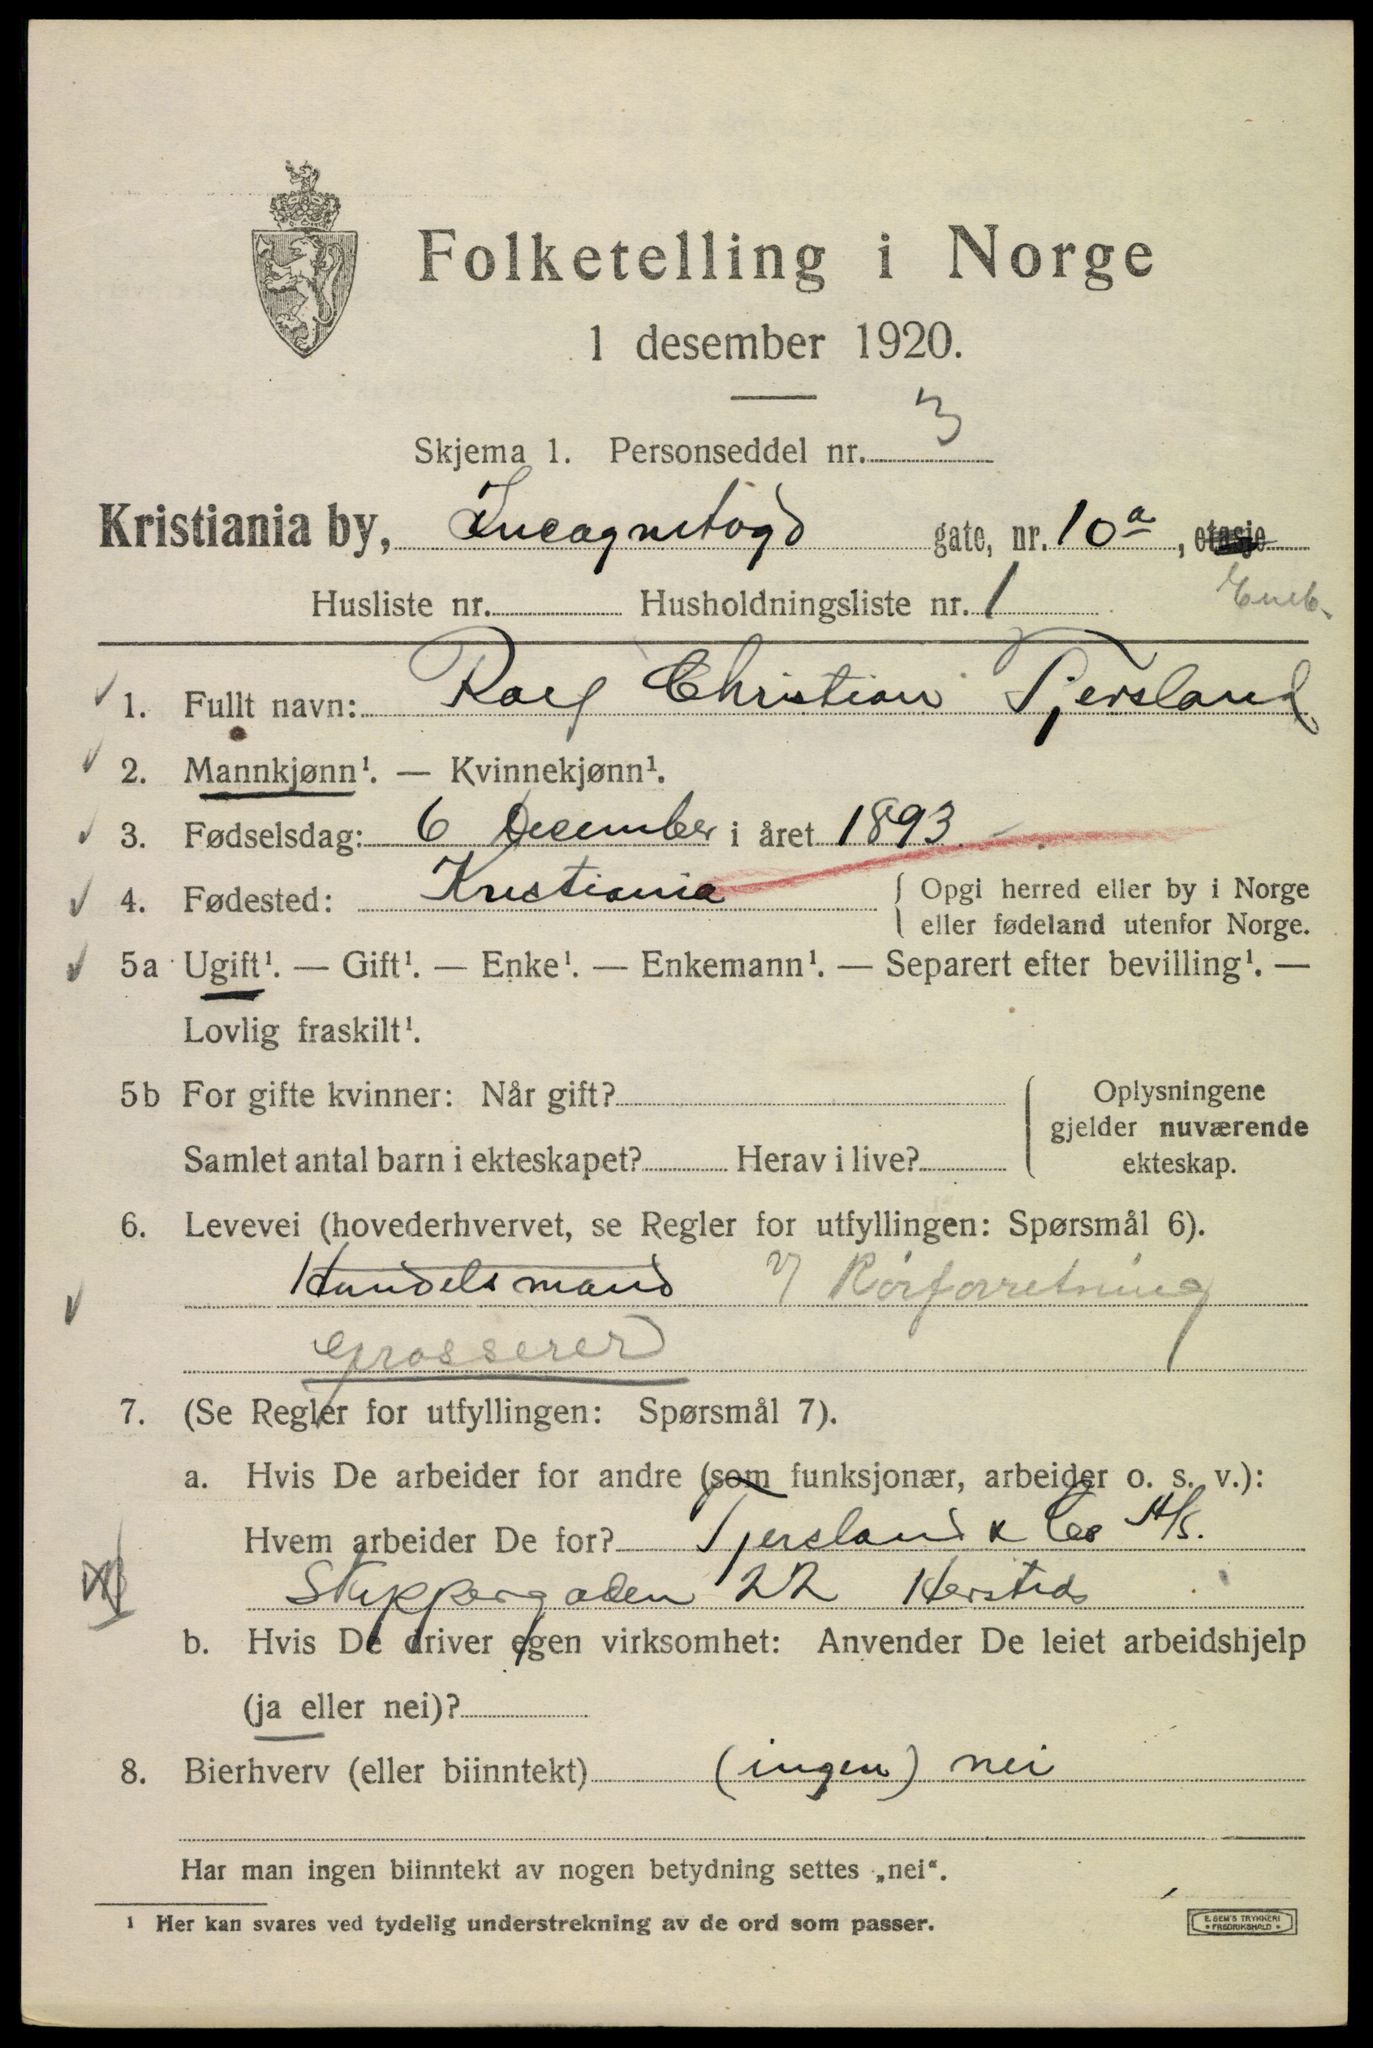 Folketelling i Norge
1 desember 1920.
Skjema 1. Personseddel nr. 3
Kristiania by, Incognitogd gate, nr. 10a, etasje
Husliste nr. Husholdningsliste nr. 1
1. Fullt navn: Rolf Christian Tjersland
2. Mannkjønn¹. — Kvinnekjønn¹.
3. Fødselsdag: 6 December i året 1893
4. Fødested: Kristiania { Opgi herred eller by i Norge
eller fødeland utenfor Norge.
5a Ugift¹. — Gift¹. — Enke¹. — Enkemann¹. — Separert efter bevilling¹. —
Lovlig fraskilt¹.
5b For gifte kvinner: Når gift? Oplysningene
gjelder nuværende
Samlet antal barn i ekteskapet? Herav i live? ekteskap.
6. Levevei (hovederhvervet, se Regler for utfyllingen: Spørsmål 6).
Handelsmand v/ Rörforretning
Grosserer
7. (Se Regler for utfyllingen: Spørsmål 7).
a. Hvis De arbeider for andre (som funksjonær, arbeider o. s. v.):
Hvem arbeider De for? Tjersland & Co A/S.
Skippergaden 22 Hersteds
b. Hvis De driver egen virksomhet: Anvender De leiet arbeidshjelp
(ja eller nei)?
8. Bierhverv (eller biinntekt) (ingen) nei
Har man ingen biinntekt av nogen betydning settes „nei“.
¹ Her kan svares ved tydelig understrekning av de ord som passer.
E. SEM'S TRYKKERI
* FREDRIKSHALD *